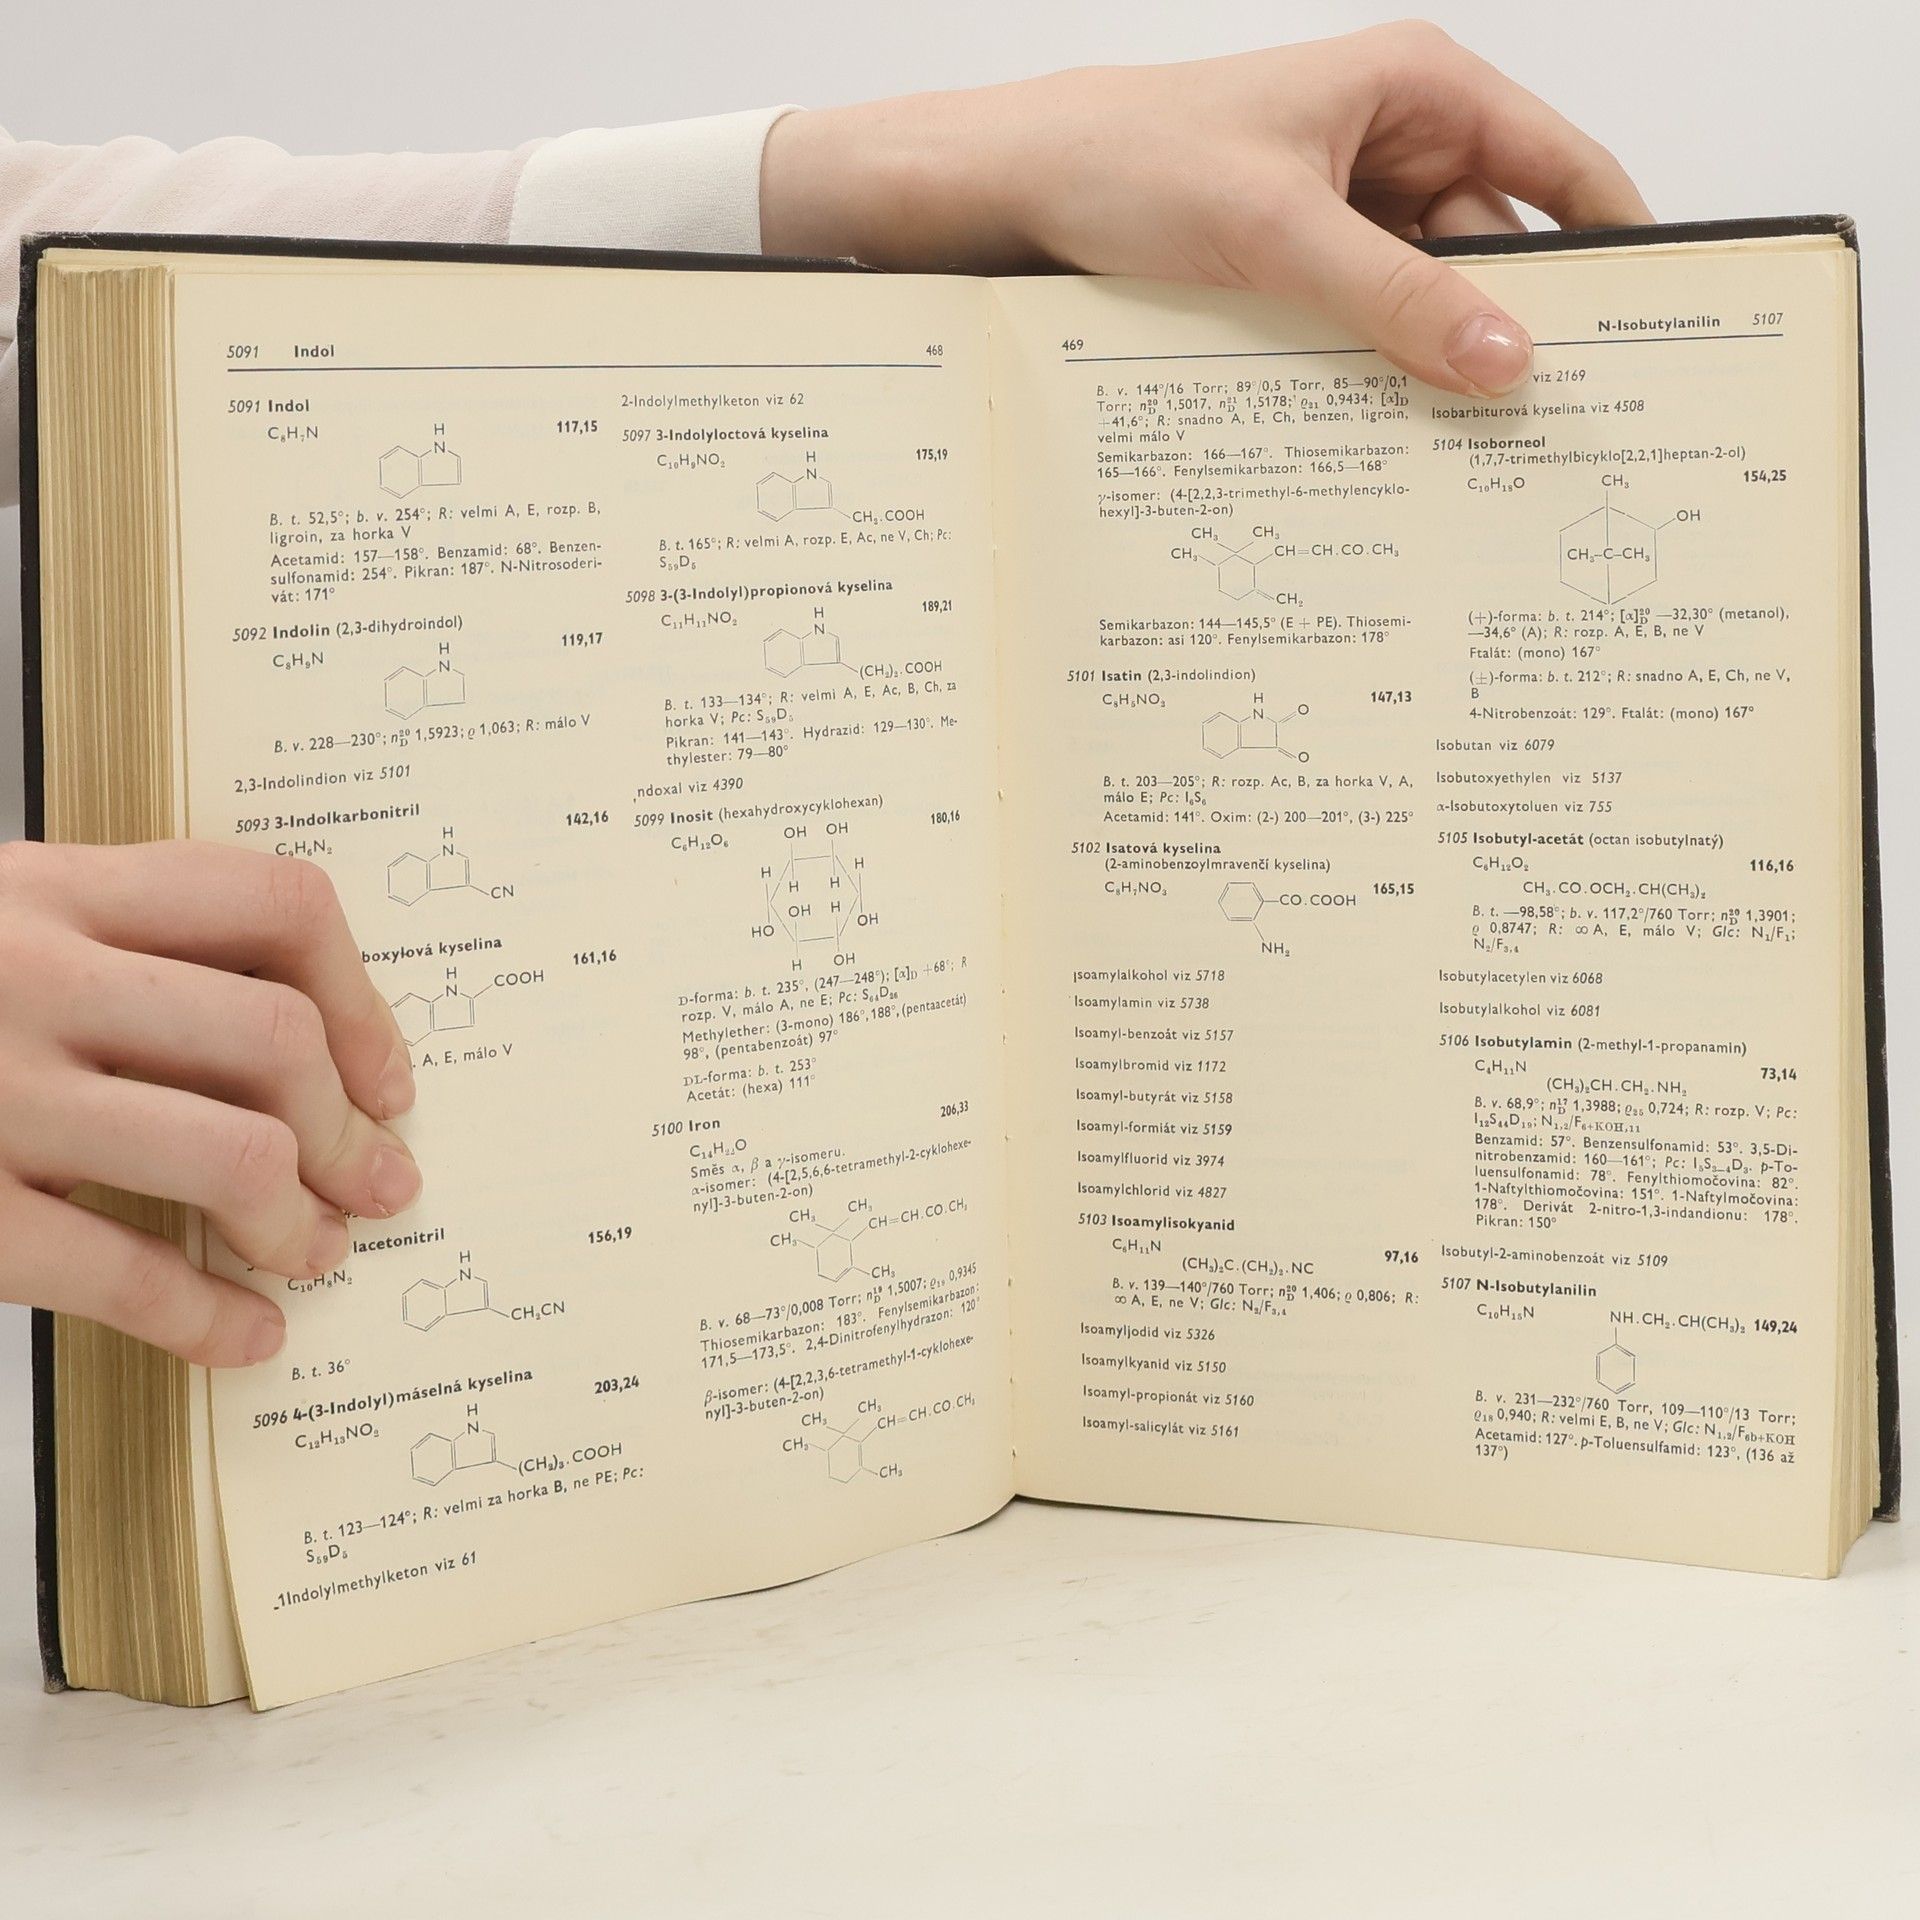 5091 Indol 468
5091 Indol
C₈H₇N 117,15
H
N
B. t. 52,5°; b. v. 254°; R: velmi A, E, rozp. B,
ligroin, za horka V
Acetamid: 157—158°. Benzamid: 68°. Benzen-
sulfonamid: 254°. Pikran: 187°. N-Nitrosoderi-
vát: 171°
5092 Indolin (2,3-dihydroindol)
C₈H₉N 119,17
H
N
B. v. 228—230°; n²⁰D 1,5923; ϱ 1,063; R: málo V
2,3-Indolindion viz 5101
5093 3-Indolkarbonitril
C₉H₆N₂ 142,16
H
N
CN
boxylová kyselina
161,16
H
N COOH
. A, E, málo V
lacetonitril
C₁₀H₈N₂ 156,19
H
N
CH₂CN
B. t. 36°
5096 4-(3-Indolyl)máselná kyselina
C₁₂H₁₃NO₂ 203,24
H
N
(CH₂)₃.COOH
B. t. 123—124°; R: velmi za horka B, ne PE; Pc:
S₅₉D₅
1Indolylmethylketon viz 61
2-Indolylmethylketon viz 62
5097 3-Indolyloctová kyselina
C₁₀H₉NO₂ 175,19
H
N
CH₂.COOH
B. t. 165°; R: velmi A, rozp. E, Ac, ne V, Ch; Pc:
S₅₉D₅
5098 3-(3-Indolyl)propionová kyselina
C₁₁H₁₁NO₂ 189,21
H
N
(CH₂)₂.COOH
B. t. 133—134°; R: velmi A, E, Ac, B, Ch, za
horka V; Pc: S₅₉D₅
Pikran: 141—143°. Hydrazid: 129—130°. Me-
thylester: 79—80°
ndoxal viz 4390
5099 Inosit (hexahydroxycyklohexan)
C₆H₁₂O₆ 180,16
OH OH
H H
H H
OH H
HO OH
H OH
D-forma: b. t. 235°, (247—248°); [α]D +68°; R
rozp. V, málo A, ne E; Pc: S₆₄D₂₆
Methylether: (3-mono) 186°, 188°, (pentaacetát)
98°, (pentabenzoát) 97°
DL-forma: b. t. 253°
Acetát: (hexa) 111°
5100 Iron 206,33
C₁₄H₂₂O
Směs α, β a γ-isomeru.
α-isomer: (4-[2,5,6,6-tetramethyl-2-cyklohexe-
nyl]-3-buten-2-on)
CH₃ CH₃
CH₃ CH=CH.CO.CH₃
CH₃
B. v. 68—73°/0,008 Torr; n¹⁹D 1,5007; ϱ₁₉ 0,9345
Thiosemikarbazon: 183°. Fenylsemikarbazon:
171,5—173,5°. 2,4-Dinitrofenylhydrazon: 120°
β-isomer: (4-[2,2,3,6-tetramethyl-1-cyklohexe-
nyl]-3-buten-2-on)
CH₃ CH₃
CH₃ CH=CH.CO.CH₃
CH₃
469 N-Isobutylanilin 5107
B. v. 144°/16 Torr; 89°/0,5 Torr, 85—90°/0,1
Torr; n²⁰D 1,5017, n²¹D 1,5178; ϱ₂₁ 0,9434; [α]D
+41,6°; R: snadno A, E, Ch, benzen, ligroin,
velmi málo V
Semikarbazon: 166—167°. Thiosemikarbazon:
165—166°. Fenylsemikarbazon: 166,5—168°
γ-isomer: (4-[2,2,3-trimethyl-6-methylencyklo-
hexyl]-3-buten-2-on)
CH₃ CH₃
CH₃ CH=CH.CO.CH₃
CH₂
Semikarbazon: 144—145,5° (E + PE). Thiosemi-
karbazon: asi 120°. Fenylsemikarbazon: 178°
5101 Isatin (2,3-indolindion)
C₈H₅NO₂ 147,13
H
N O
O
B. t. 203—205°; R: rozp. Ac, B, za horka V, A,
málo E; Pc: I₆S₆
Acetamid: 141°. Oxim: (2-) 200—201°, (3-) 225°
5102 Isatová kyselina
(2-aminobenzoylmravenčí kyselina)
C₈H₇NO₃ 165,15
CO.COOH
NH₂
Isoamylalkohol viz 5718
Isoamylamin viz 5738
Isoamyl-benzoát viz 5157
Isoamylbromid viz 1172
Isoamyl-butyrát viz 5158
Isoamyl-formiát viz 5159
Isoamylfluorid viz 3974
Isoamylchlorid viz 4827
5103 Isoamylisokyanid
C₆H₁₁N 97,16
(CH₃)₂C.(CH₂)₂.NC
B. v. 139—140°/760 Torr; n²⁰D 1,406; ϱ 0,806; R:
∞ A, E, ne V; Glc: N₂/F₃,₄
Isoamyljodid viz 5326
Isoamylkyanid viz 5150
Isoamyl-propionát viz 5160
Isoamyl-salicylát viz 5161
viz 2169
Isobarbiturová kyselina viz 4508
5104 Isoborneol
(1,7,7-trimethylbicyklo[2,2,1]heptan-2-ol)
C₁₀H₁₈O CH₃ 154,25
OH
CH₃–C–CH₃
(+)-forma: b. t. 214°; [α]²⁰D —32,30° (metanol),
—34,6° (A); R: rozp. A, E, B, ne V
Ftalát: (mono) 167°
(±)-forma: b. t. 212°; R: snadno A, E, Ch, ne V,
B
4-Nitrobenzoát: 129°. Ftalát: (mono) 167°
Isobutan viz 6079
Isobutoxyethylen viz 5137
α-Isobutoxytoluen viz 755
5105 Isobutyl-acetát (octan isobutylnatý)
C₆H₁₂O₂ 116,16
CH₃.CO.OCH₂.CH(CH₃)₂
B. t. —98,58°; b. v. 117,2°/760 Torr; n²⁰D 1,3901;
ϱ 0,8747; R: ∞ A, E, málo V; Glc: N₁/F₁;
N₂/F₃,₄
Isobutylacetylen viz 6068
Isobutylalkohol viz 6081
5106 Isobutylamin (2-methyl-1-propanamin)
C₄H₁₁N 73,14
(CH₃)₂CH.CH₂.NH₂
B. v. 68,9°; n¹⁷D 1,3988; ϱ₂₅ 0,724; R: rozp. V; Pc:
I₁₂S₄₄D₁₉; N₁,₂/F₆₊KOH,₁₁
Benzamid: 57°. Benzensulfonamid: 53°. 3,5-Di-
nitrobenzamid: 160—161°; Pc: I₅S₃₋₄D₃. p-To-
luensulfonamid: 78°. Fenylthiomočovina: 82°.
1-Naftylthiomočovina: 151°. 1-Naftylmočovina:
178°. Derivát 2-nitro-1,3-indandionu: 178°.
Pikran: 150°
Isobutyl-2-aminobenzoát viz 5109
5107 N-Isobutylanilin
C₁₀H₁₅N NH.CH₂.CH(CH₃)₂ 149,24
B. v. 231—232°/760 Torr, 109—110°/13 Torr;
ϱ₁₈ 0,940; R: velmi E, B, ne V; Glc: N₁,₂/F₆b+KOH
Acetamid: 127°. p-Toluensulfamid: 123°, (136 až
137°)